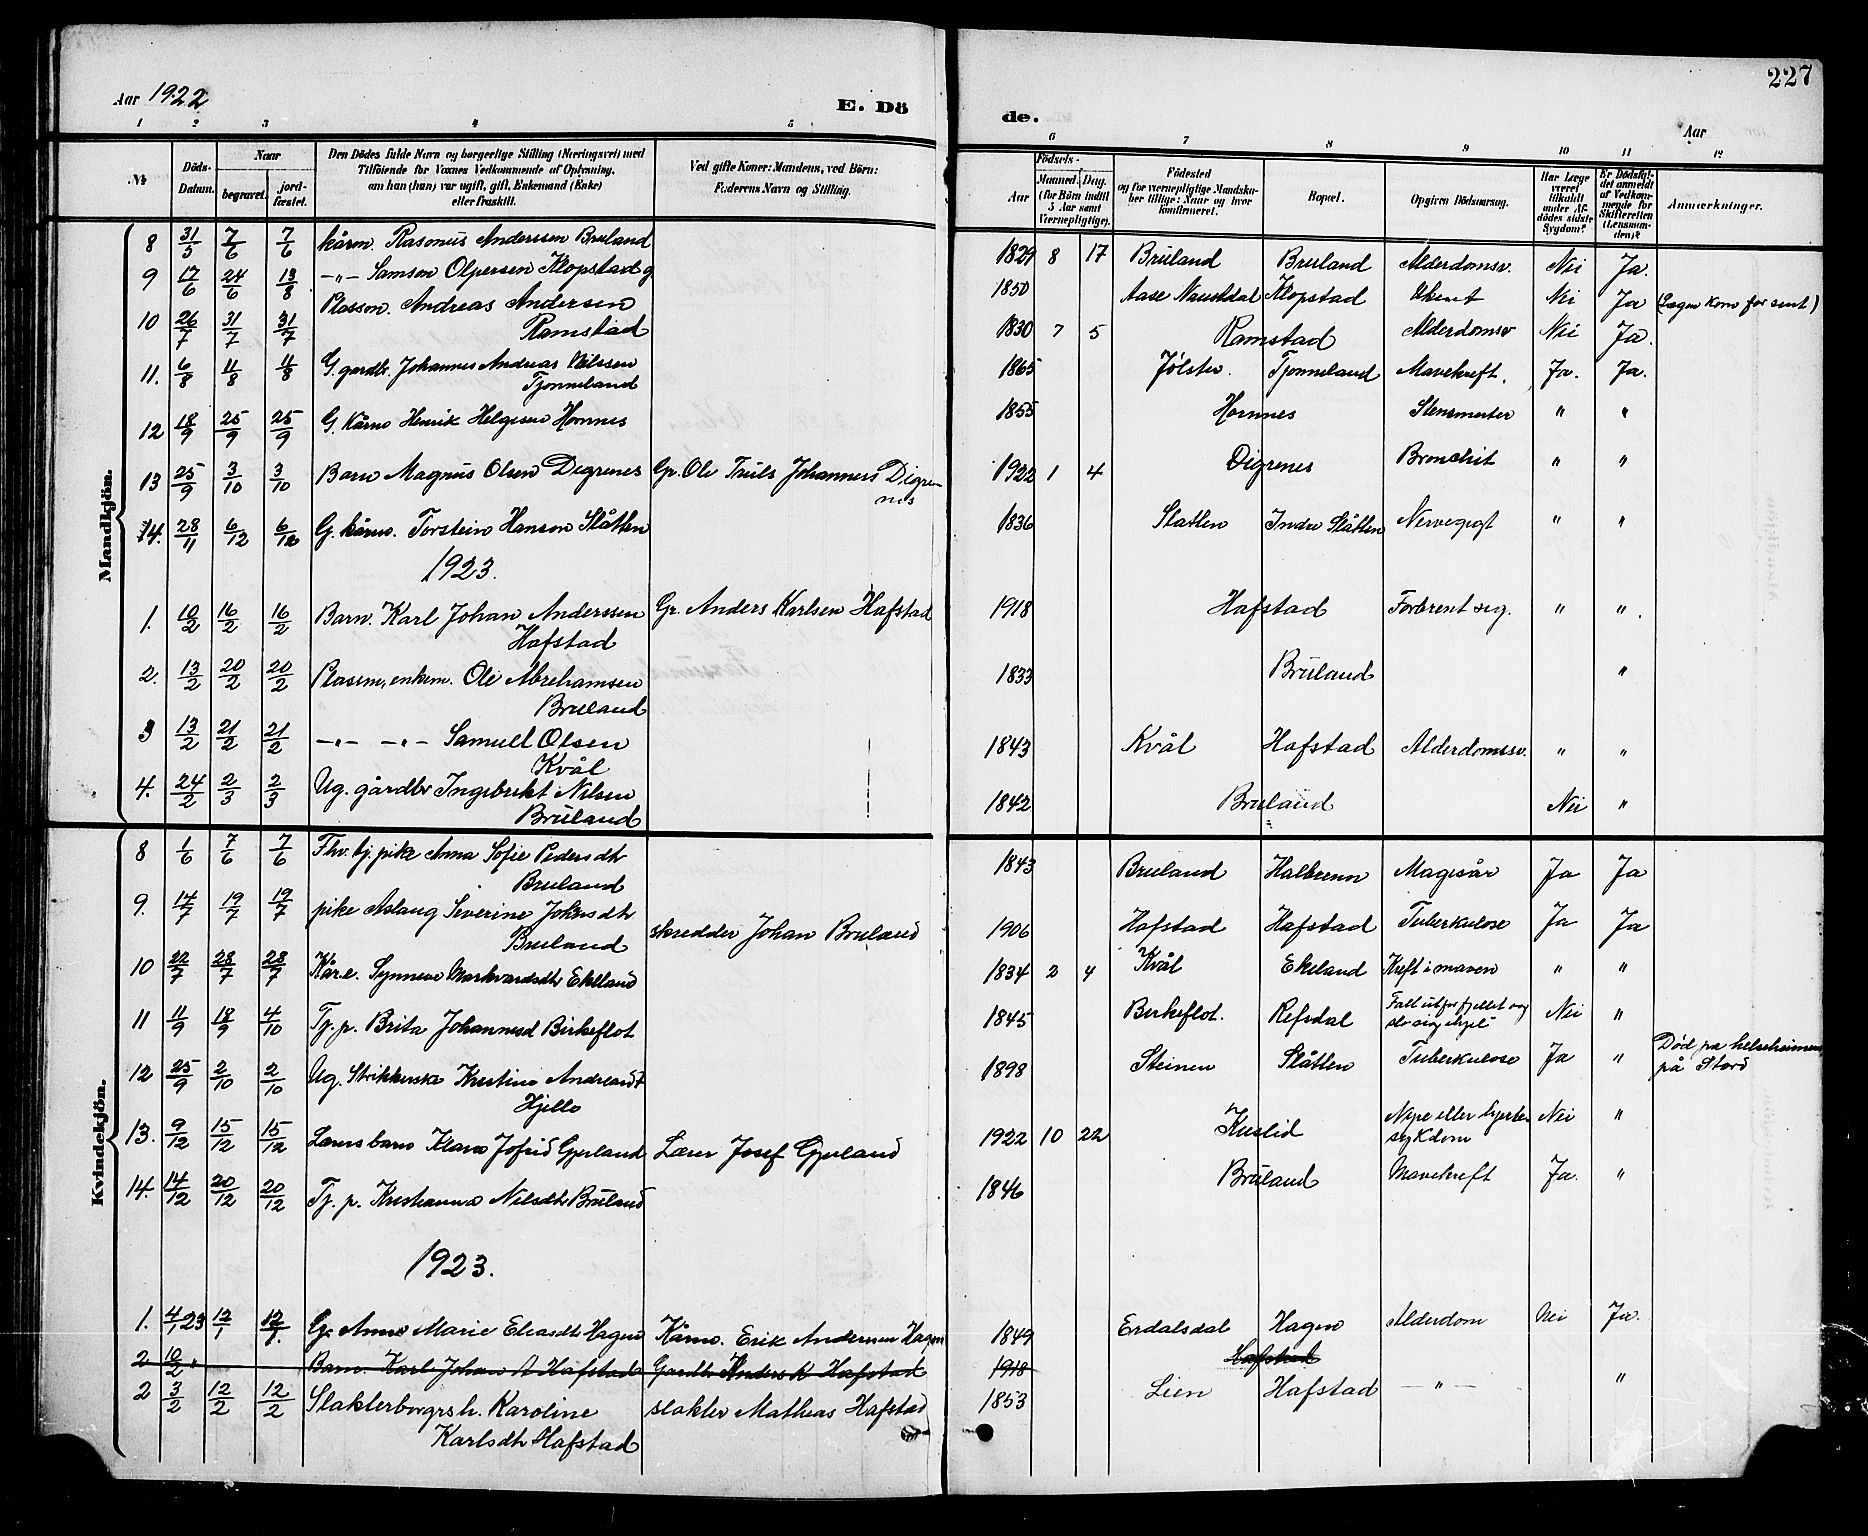 227
Aar 1922
E. Dö
de.
Aar
1 2 3 4 5
6 7 8 9 10 11 12
№
Döds-Datum.
Naar
begravet.
jord-fæstet.
Den Dödes fulde Navn og borgerlige Stilling (Næringsvei) med
Tilföiende for Voxnes Vedkommende af Oplysning,
om han (hun) var ugift, gift, Enkemand (Enke)
eller fraskilt.
Ved gifte Koner: Mandens, ved Börn:
Faderens Navn og Stilling.
Födsels-
Aar
Maaned. Dag.
(for Börn indtil 5 Aar samt Værnepligtige).
Födested
og for værnepligtige Mandskaber tillige: Naar og hvor konfirmeret.
Bopæl.
Opgiven Dödsaarsag.
Har Læge været tilkaldt under Afdödes sidste Sygdom?
Er Dödsfaldet anmeldt af Vedkommende for Skifteretten (Lensmanden)?
Anmærkninger.
Mandkjön.
8 31/5 7/6 7/6 kårm. Rasmus Anderssen Bruland 1829 8 17 Bruland Bruland Alderdomsv. Nei Ja.
9 17/6 24/6 13/8 -"- Samson Olpersen Klopstad g 1850 Aase Naustdal Klopstad Ukent Nei Ja (Lægen kom for sent)
10 26/7 31/7 31/7 Plassm. Andreas Andersen
Ramstad 1830 7 5 Ramstad Alderdomsv Nei Ja.
11. 6/8 11/8 11/8 G. gardbr. Johannes Andreas Nilssen
Tjønneland 1865 Jølster. Tjønneland Mavekreft. Ja. Ja.
12 18/9 25/9 25/9 G. Kårm Henrik Helgesen Hornnes 1855 Hornnes Stensmerter " "
13 25/9 3/10 3/10 Barn Magnus Olsen Digrenes Gr. Ole Truls Johannes Digre-
nes 1922 1 4 Digrenes Bronchit " "
14. 28/11 6/12 6/12 G. kårm. Torstein Hanson Slåtten 1836 Slatten Indre Slåtten Nervegigt " "
1923.
1. 10/2 16/2 16/2 Barn. Karl Johan Anderssen
Hafstad Gr. Anders Karlsen Hafstad 1918 Hafstad Forbrent sig. " ".
2. 13/2 20/2 20/2 Plassm, enkem. Ole Abrehamsen
Bruland 1833 Bruland "
3 13/2 21/2 21/2 -"- -"- Samuel Olsen
Kvål 1843 Kvål Hafstad Alderdomssv. " "
4. 24/2 2/3 2/3 Ug. gårdbr Ingebrikt Nilsen
Bruland 1842 Bruland Nei "
Kvindekjön.
8 1/6 7/6 7/6 Fhv. tj. pike Anna Sofie Pedersdtr
Bruland 1843 Bruland Halbrenn Magesår Ja Ja
9. 14/7 19/7 19/7 pike Aslaug Severine Johansdtr
Bruland skredder Johan Bruland 1906 Hafstad Hafstad Tuberkulose Ja Ja
10 22/7 28/7 28/7 Kår.e. Synneve Markvardsdtr Ekeland 1834 2 4 Kvål Ekeland Kreft i maven " "
11 11/9 18/9 4/10 Tj. p. Brita Johannesd Birkeflot 1845 Birkeflot. Refsdal Falt utfor fjellet og
slo sig ihjel Nei "
12 25/9 2/10 2/10 Ug. Strikkerske Kristine Andreasdt
Hjelle 1898 Steinen Slåtten Tuberkulose Ja " Død pa helseheimen
på Stord
13. 9/12 15/12 15/12 Lærersbarn Klara Jofrid Gjerland Lærer Josef Gjerland 1922 10 22 Kuslid Nyre eller hjerte
sykdom Nei "
14. 14/12 20/12 20/12 Tj. p. Kristianna Nilsdtr Bruland 1846 Bruland Mavekreft Ja. "
1923.
1. 4/1 23 12/1 12/1. Gr. Anne Marie Eliasdtr Hagen Kårm. Erik Andersen Hagen 1849 Erdalsdal Hagen Alderdom Nei Ja.
2 10/2 " Barn. Karl Johan A Hafstad Gardbr Anders K Hafstad 1918 Hafstad
2 3/2 12/2 12/2 Slakterborgersh. Karoline
Karlsdtr Hafstad slakter Mathias Hafstad 1853 Lien Hafstad -"- "